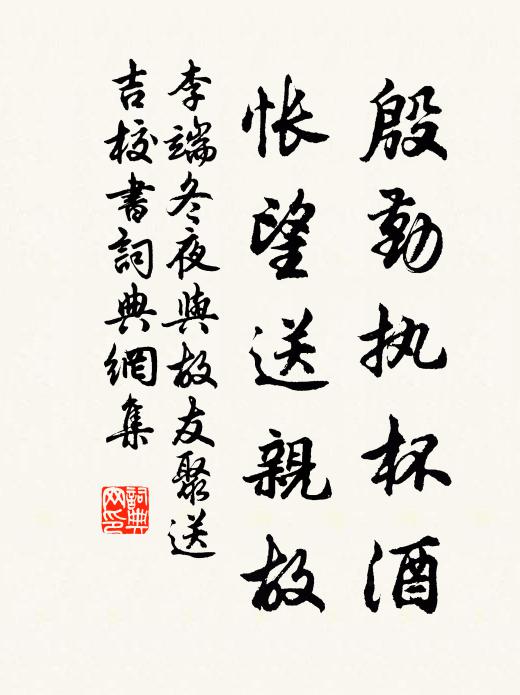 殷勤执杯酒
悵望送親故
李端冬夜與故友聚送
吉校書詞典網集
詞典
网印